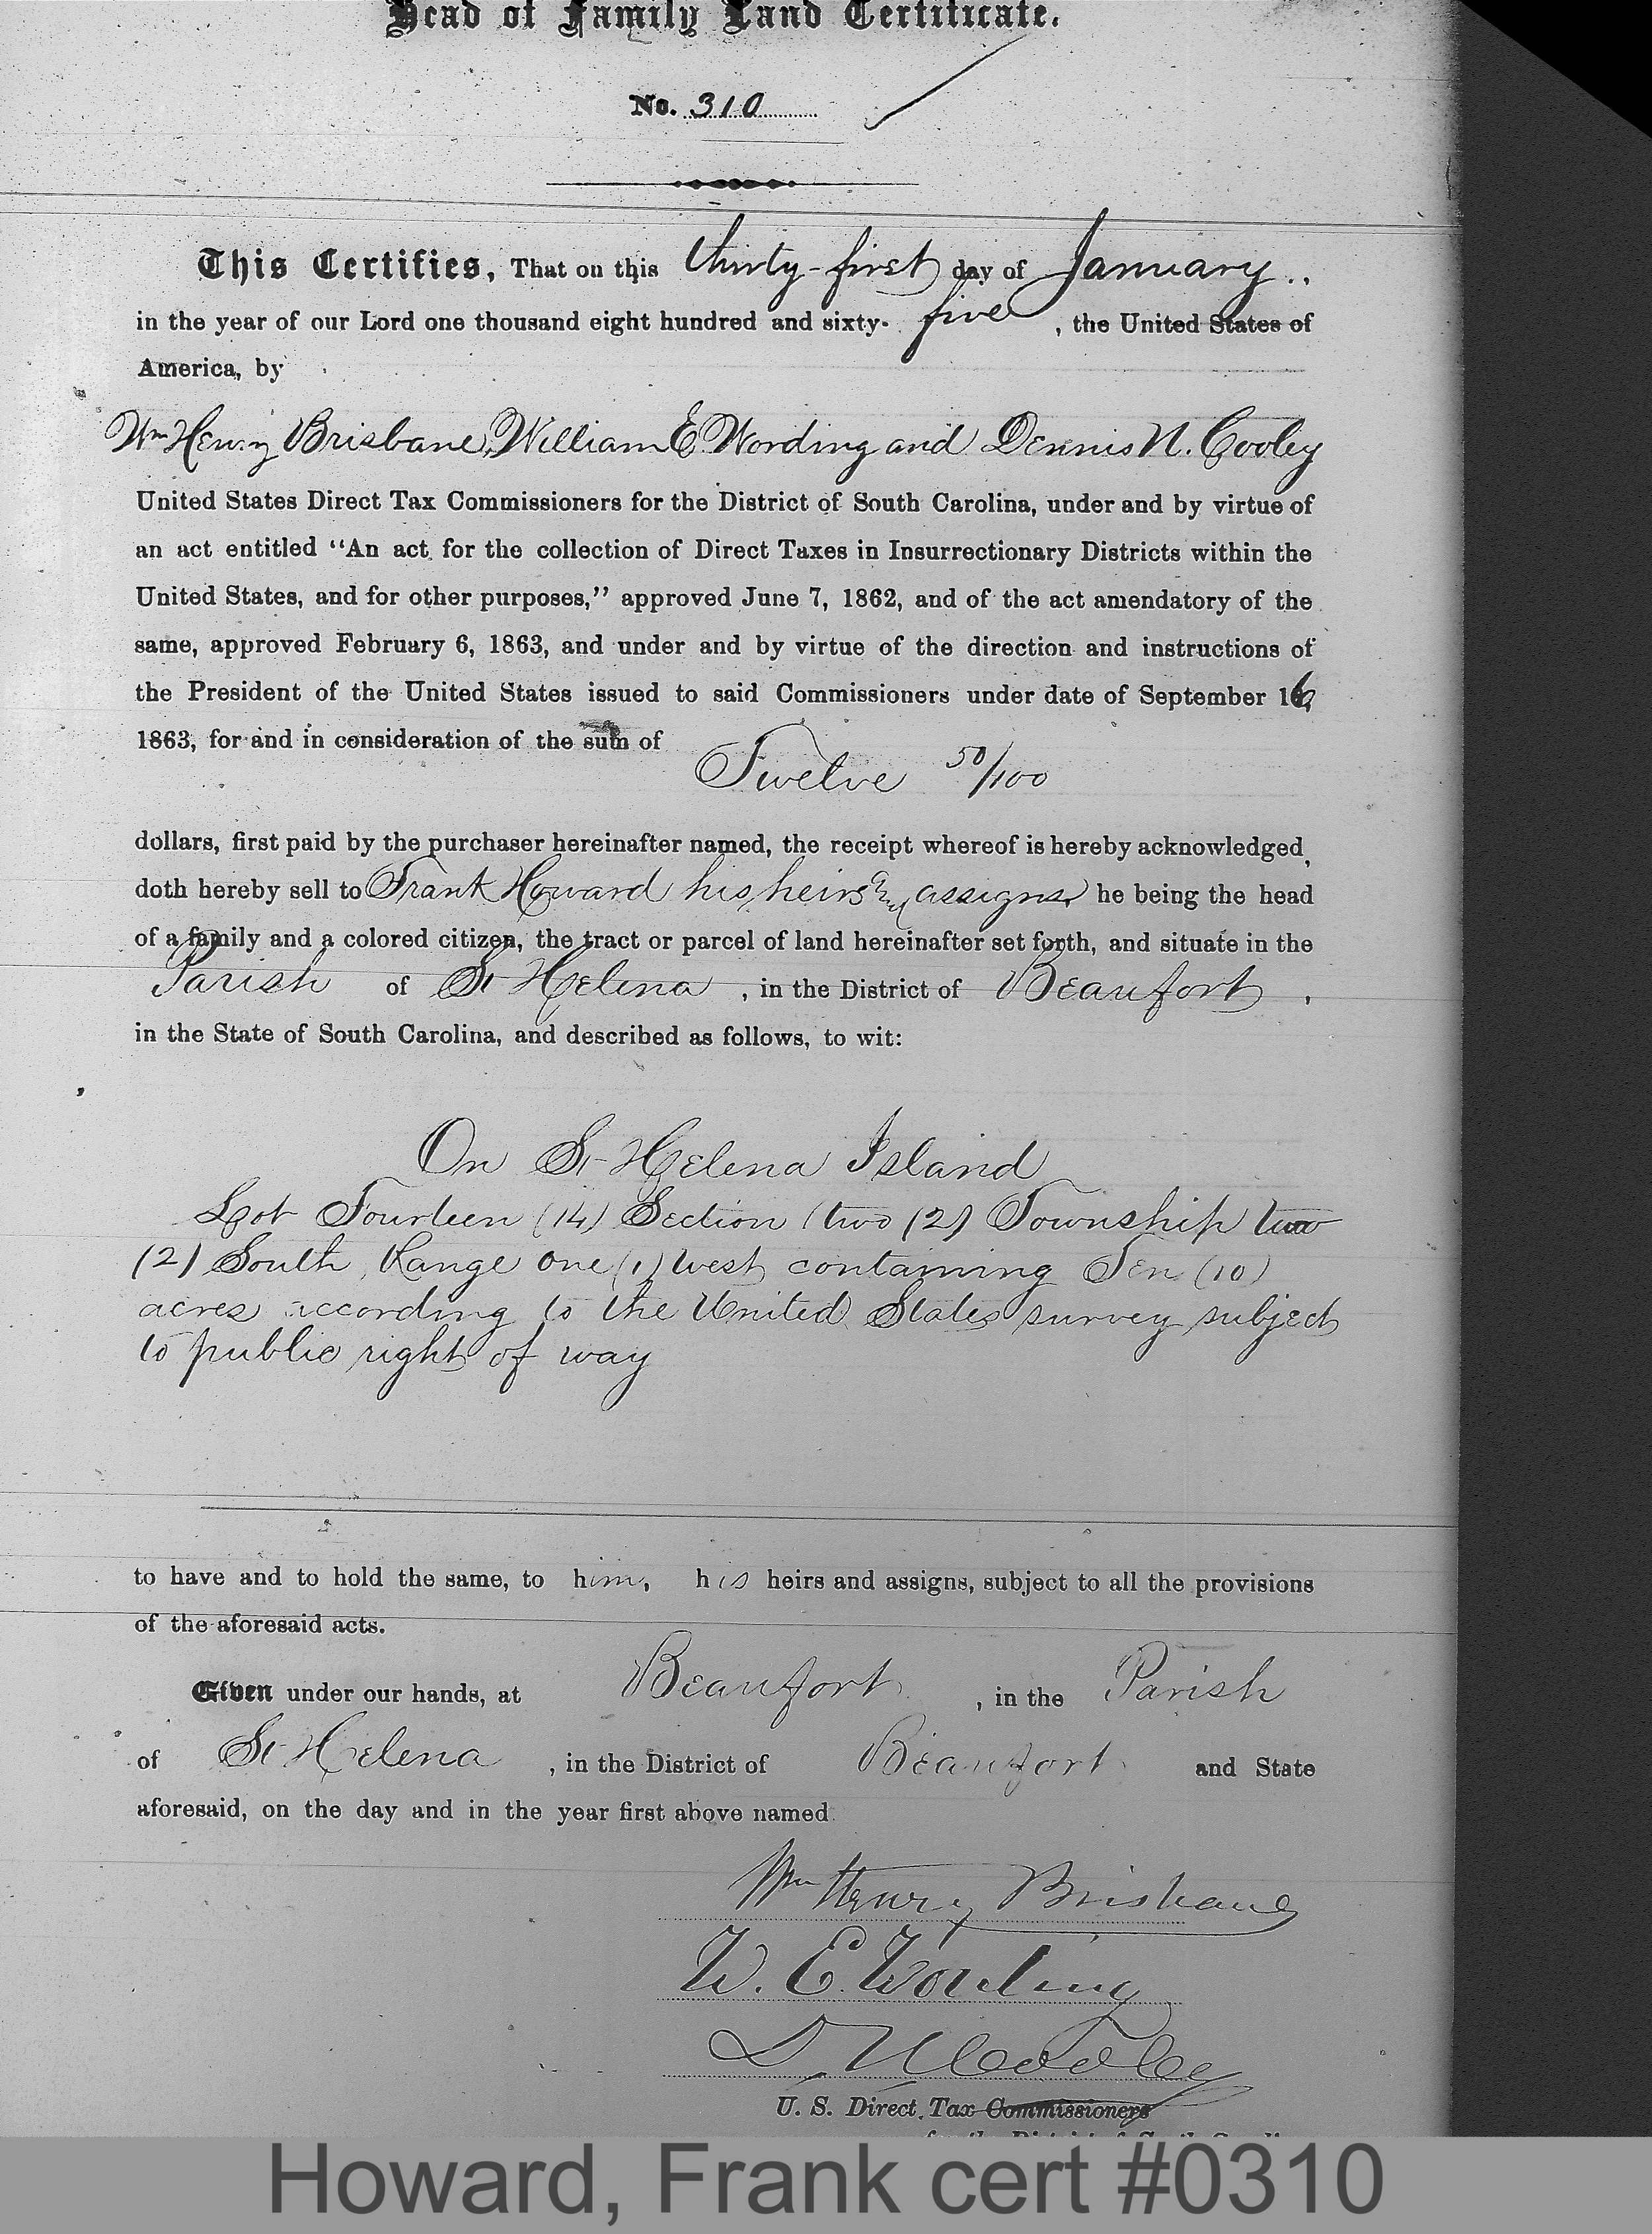 Head of Family Land Certificate.
No. 310
This Certifies, That on this thirty-first day of January.,
in the year of our Lord one thousand eight hundred and sixty- five, the United States of
America, by
Wm Henry Brisbane, William E. Wording and Dennis N. Cooley
United States Direct Tax Commissioners for the District of South Carolina, under and by virtue of
an act entitled “An act for the collection of Direct Taxes in Insurrectionary Districts within the
United States, and for other purposes,” approved June 7, 1862, and of the act amendatory of the
same, approved February 6, 1863, and under and by virtue of the direction and instructions of
the President of the United States issued to said Commissioners under date of September 16,
1863, for and in consideration of the sum of
Twelve 50/100
dollars, first paid by the purchaser hereinafter named, the receipt whereof is hereby acknowledged,
doth hereby sell to Frank Howard his heirs & assigns, he being the head
of a family and a colored citizen, the tract or parcel of land hereinafter set forth, and situate in the
Parish of St Helena, in the District of Beaufort,
in the State of South Carolina, and described as follows, to wit:
On St Helena Island
Lot Fourteen (14) Section (two (2) Township two
(2) South, Range one (1) West containing Ten (10)
acres according to the United States survey subject
to public right of way
to have and to hold the same, to him, his heirs and assigns, subject to all the provisions
of the aforesaid acts.
Given under our hands, at Beaufort, in the Parish
of St Helena, in the District of Beaufort and State
aforesaid, on the day and in the year first above named.
Wm Henry Brisbane
W. E. Wording
D N Cooley
U. S. Direct Tax Commissioners
Howard, Frank cert #0310